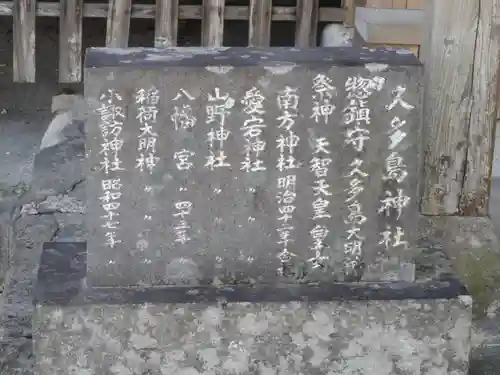 久多島神社
惣鎮守 久多島大明神
祭神 天智天皇 皇女
南方神社 明治四十二年合祀
愛宕神社 〃 〃
山野神社 〃 〃
八幡宮 〃 四十三年 〃
稲荷大明神 〃 〃 〃
小諏訪神社 昭和四十七年 〃